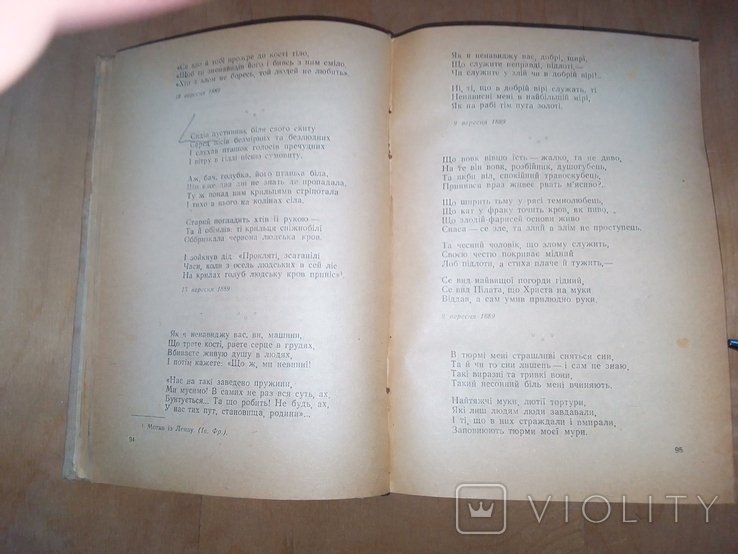 «Се зло й тобі прожре до кості тіло,
«Щоб ти зненавидів його і бивсь з ним сміло,
«Хто з злом не боресь, той людей не любить».
18 вересня 1889
Сидів пустинник біля свого скиту
Серед лісів безмірних та безлюдних
І слухав пташок голосів пречудних
І вітру в гіллі пісню сумовиту.
Аж, бач, голубка, його пташка біла,
Що вже два дні не знать де пропадала,
Ту ж понад ним крильцями стріпотала
І тихо в нього на колінах сіла.
Старий погладить хтів її рукою —
Та й обімлів: ті крильця сніжнобілі
Оббризкала червона людська кров.
І зойкнув дід: «Прокляті, зсаганілі
Часи, коли з осель людських в сей ліс
На крилах голуб людську кров приніс»¹.
15 вересня 1889
Як я ненавиджу вас, ви, машини,
Що трете кості, рвете серце в грудях,
Вбиваєте живую душу в людях,
І потім кажете: «Що ж, ми невинні!
«Нас на такі заведено пружини,
Ми мусимо! В самих не раз вся суть, ах,
Бунтується... Та що робить! Не будь, ах,
У нас тих пут, становища, родини»...
¹ Мотив із Ленау. (Ів. Фр.).
94
Як я ненавиджу вас, добрі, щирі,
Що служите неправді, підлоті,—
Чи служите у злій чи в добрій вірі!..
Ні, ті, що в добрій вірі служать, ті
Ненависні мені в найбільшій мірі,
Як на рабі тім пута золоті.
9 вересня 1889
Що вовк вівцю їсть — жалко, та не диво,
На те він вовк, розбійник, душогубець,
Та якби віл, спокійний травоскубець,
Привився враз живее рвать м'ясиво?..
Що ширить тьму у рясі темнолюбець,
Що кат у фраку точить кров, як пиво,
Що злодій-фарисей основи живо
Спаса — се зле, та злий в злім не проступець.
Та чесний чоловік, що злому служить,
Своєю честю покриває мідяний
Лоб підлоти, а стиха плаче й тужить,—
Се вид найвищої погорди гідний,
Се вид Пілата, що Христа на муки
Віддав, а сам умив прилюдно руки.
9 вересня 1889
В тюрмі мені страшливі сняться сни,
Та й чи то сни лишень — і сам не знаю,
Такі виразні та тривкі вони,
Такий несонний біль мені вчиняють.
Найтяжчі муки, лютії тортури,
Які лиш людям люди завдавали,
І ті, що в них страждали і вмирали,
Заповнюють тюрми моєї мури.
95
VIOLITY